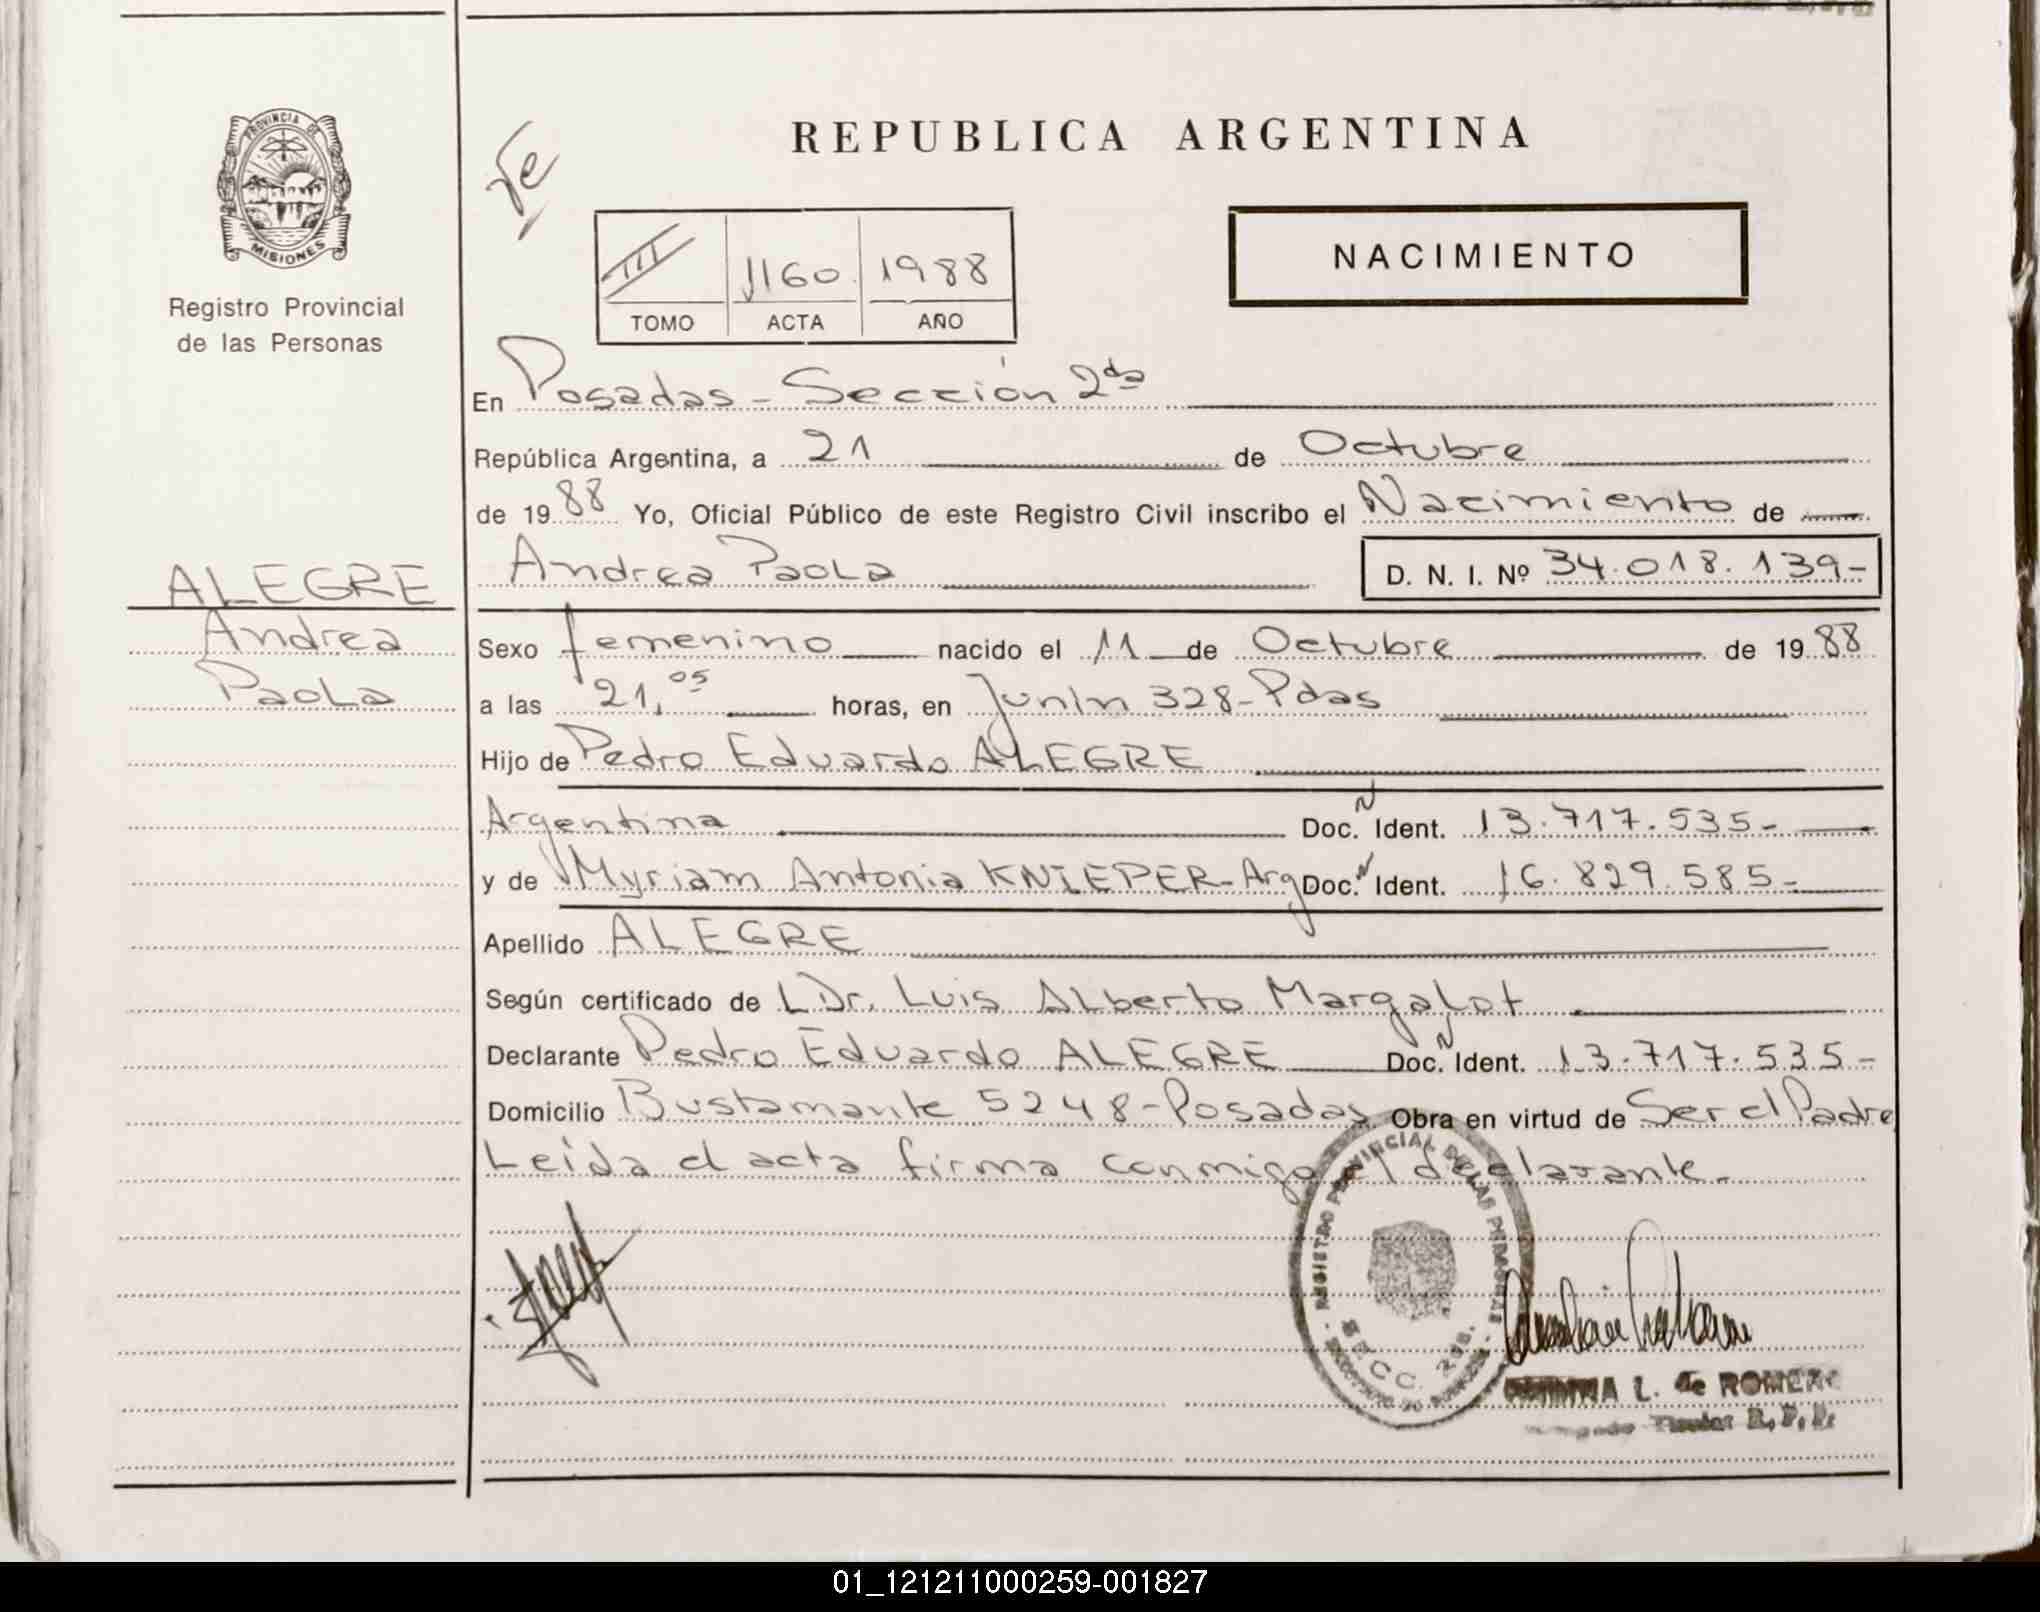 REPUBLICA ARGENTINA
PROVINCIA DE
MISIONES
Registro Provincial
de las Personas
III 1160 1988
TOMO ACTA AÑO
NACIMIENTO
En Posadas - Sección 2da
República Argentina, a 21 de Octubre
de 1988 Yo, Oficial Público de este Registro Civil inscribo el Nacimiento de
Andrea Paola D. N. I. Nº 34.018.139-
ALEGRE
Andrea
Paola
Sexo femenino nacido el 11 de Octubre de 1988
a las 21,05 horas, en Junín 328-Pdas
Hijo de Pedro Eduardo ALEGRE
Argentina Doc. N Ident. 13.717.535-
y de Myriam Antonia KNIEPER-Arg Doc. N Ident. 16.829.585-
Apellido ALEGRE
Según certificado de LDr. Luis Alberto Margalot
Declarante Pedro Eduardo ALEGRE Doc. N Ident. 13.717.535-
Domicilio Bustamante 5248-Posadas Obra en virtud de Ser el Padre
Leída el acta firma conmigo el declarante.
REGISTRO PROVINCIAL DE LAS PERSONAS
SECC. 2da.
L. de ROMERO
Titular R.P.P.
01_121211000259-001827